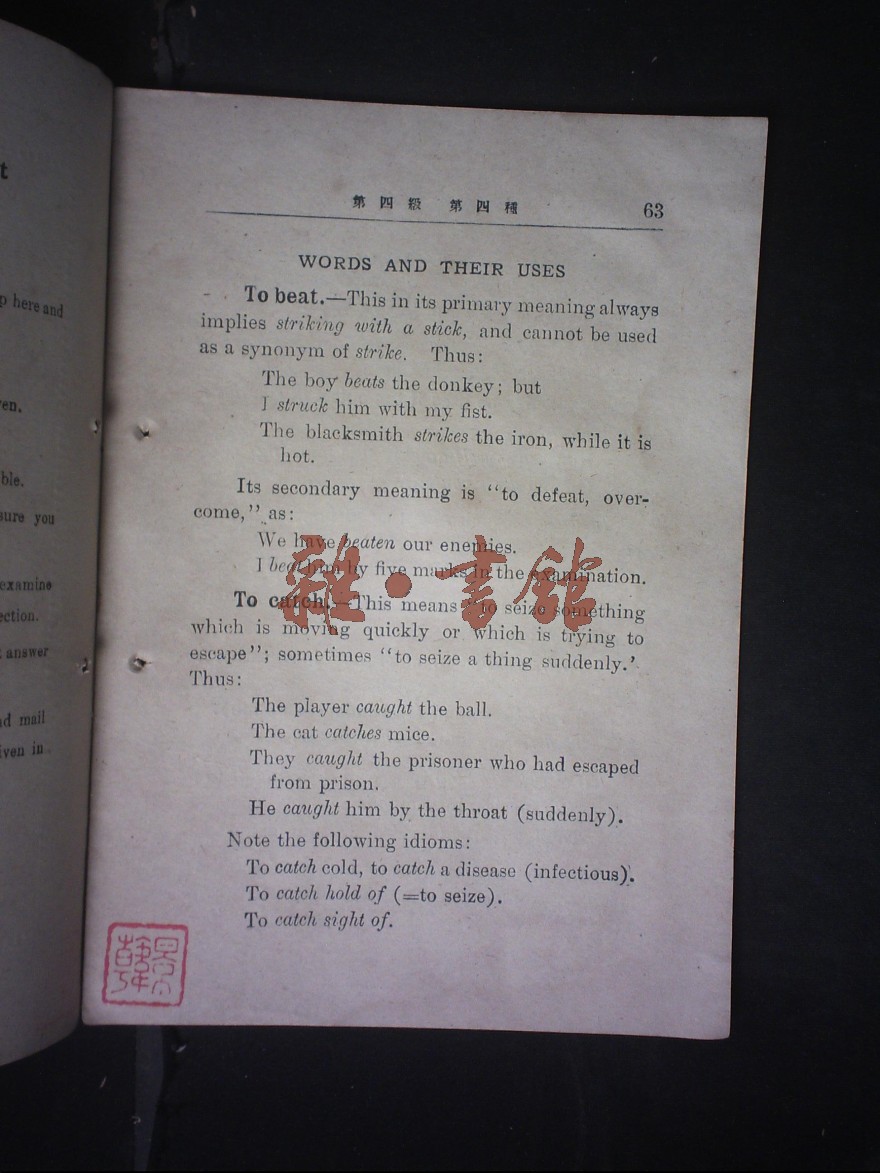 t
p here and
en.
ble.
sure you
examine
ection.
answer
nd mail
iven in
第四級 第四種 63
WORDS AND THEIR USES
To beat.—This in its primary meaning always
implies striking with a stick, and cannot be used
as a synonym of strike. Thus:
The boy beats the donkey; but
I struck him with my fist.
The blacksmith strikes the iron, while it is
hot.
Its secondary meaning is “to defeat, over-
come,” as:
We have beaten our enemies.
I beat him by five marks in the examination.
To catch.—This means “to seize something
which is moving quickly or which is trying to
escape”; sometimes “to seize a thing suddenly.’
Thus:
The player caught the ball.
The cat catches mice.
They caught the prisoner who had escaped
from prison.
He caught him by the throat (suddenly).
Note the following idioms:
To catch cold, to catch a disease (infectious).
To catch hold of (=to seize).
To catch sight of.
雜·書館